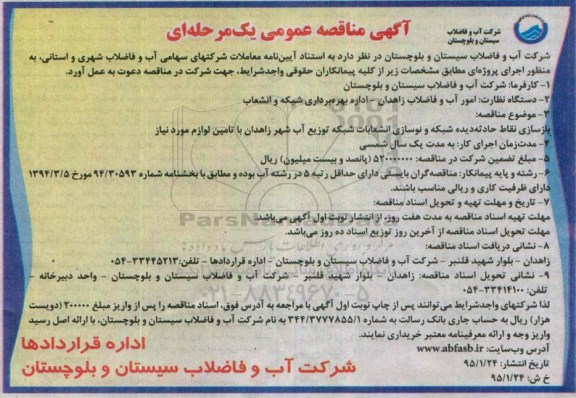 شرکت آب و فاضلاب
سیستان و بلوچستان
آگهی مناقصه عمومی یک‌مرحله‌ای
شرکت آب و فاضلاب سیستان و بلوچستان در نظر دارد به استناد آیین‌نامه معاملات شرکتهای سهامی آب و فاضلاب شهری و استانی، به
منظور اجرای پروژه‌ای مطابق مشخصات زیر از کلیه پیمانکاران حقوقی واجدشرایط، جهت شرکت در مناقصه دعوت به عمل آورد.
۱- کارفرما: شرکت آب و فاضلاب سیستان و بلوچستان
۲- دستگاه نظارت: امور آب و فاضلاب زاهدان - اداره بهره‌برداری شبکه و انشعاب
۳- موضوع مناقصه:
بازسازی نقاط حادثه‌دیده شبکه و نوسازی انشعابات شبکه توزیع آب شهر زاهدان با تامین لوازم مورد نیاز
۴- مدت‌زمان اجرای کار: به مدت یک سال شمسی
۵- مبلغ تضمین شرکت در مناقصه: ۵۲۰۰۰۰۰۰۰ (پانصد و بیست میلیون) ریال
۶- رشته و پایه پیمانکار: مناقصه‌گران بایستی دارای حداقل رتبه ۵ در رشته آب بوده و مطابق با بخشنامه شماره ۹۴/۳۰۵۹۳ مورخ ۱۳۹۴/۳/۵
دارای ظرفیت کاری و ریالی مناسب باشند.
۷- تاریخ و مهلت تهیه و تحویل اسناد مناقصه:
مهلت تهیه اسناد مناقصه به مدت هفت روز، از انتشار نوبت اول آگهی می‌باشد.
مهلت تحویل اسناد مناقصه از آخرین روز توزیع اسناد ده روز می‌باشد.
۸- نشانی دریافت اسناد مناقصه:
زاهدان - بلوار شهید قلنبر - شرکت آب و فاضلاب سیستان و بلوچستان - اداره قراردادها - تلفن: ۳۳۴۴۵۲۱۳-۰۵۴
۹- نشانی تحویل اسناد مناقصه: زاهدان - بلوار شهید قلنبر - شرکت آب و فاضلاب سیستان و بلوچستان - واحد دبیرخانه -
تلفن: ۳۳۴۱۴۱۰۰-۰۵۴
لذا شرکتهای واجدشرایط می‌توانند پس از چاپ نوبت اول آگهی با مراجعه به آدرس فوق، اسناد مناقصه را پس از واریز مبلغ ۲۰۰۰۰۰ (دویست
هزار) ریال به حساب جاری بانک رسالت به شماره ۳۴۴/۳۷۷۷۸۵۵/۱ به نام شرکت آب و فاضلاب سیستان و بلوچستان، با ارائه اصل رسید
واریز وجه و ارائه معرفینامه معتبر خریداری نمایند.
آدرس وب‌سایت: www.abfasb.ir
تاریخ انتشار: ۹۵/۱/۲۴
خ ش: ۹۵/۱/۲۴
اداره قراردادها
شرکت آب و فاضلاب سیستان و بلوچستان